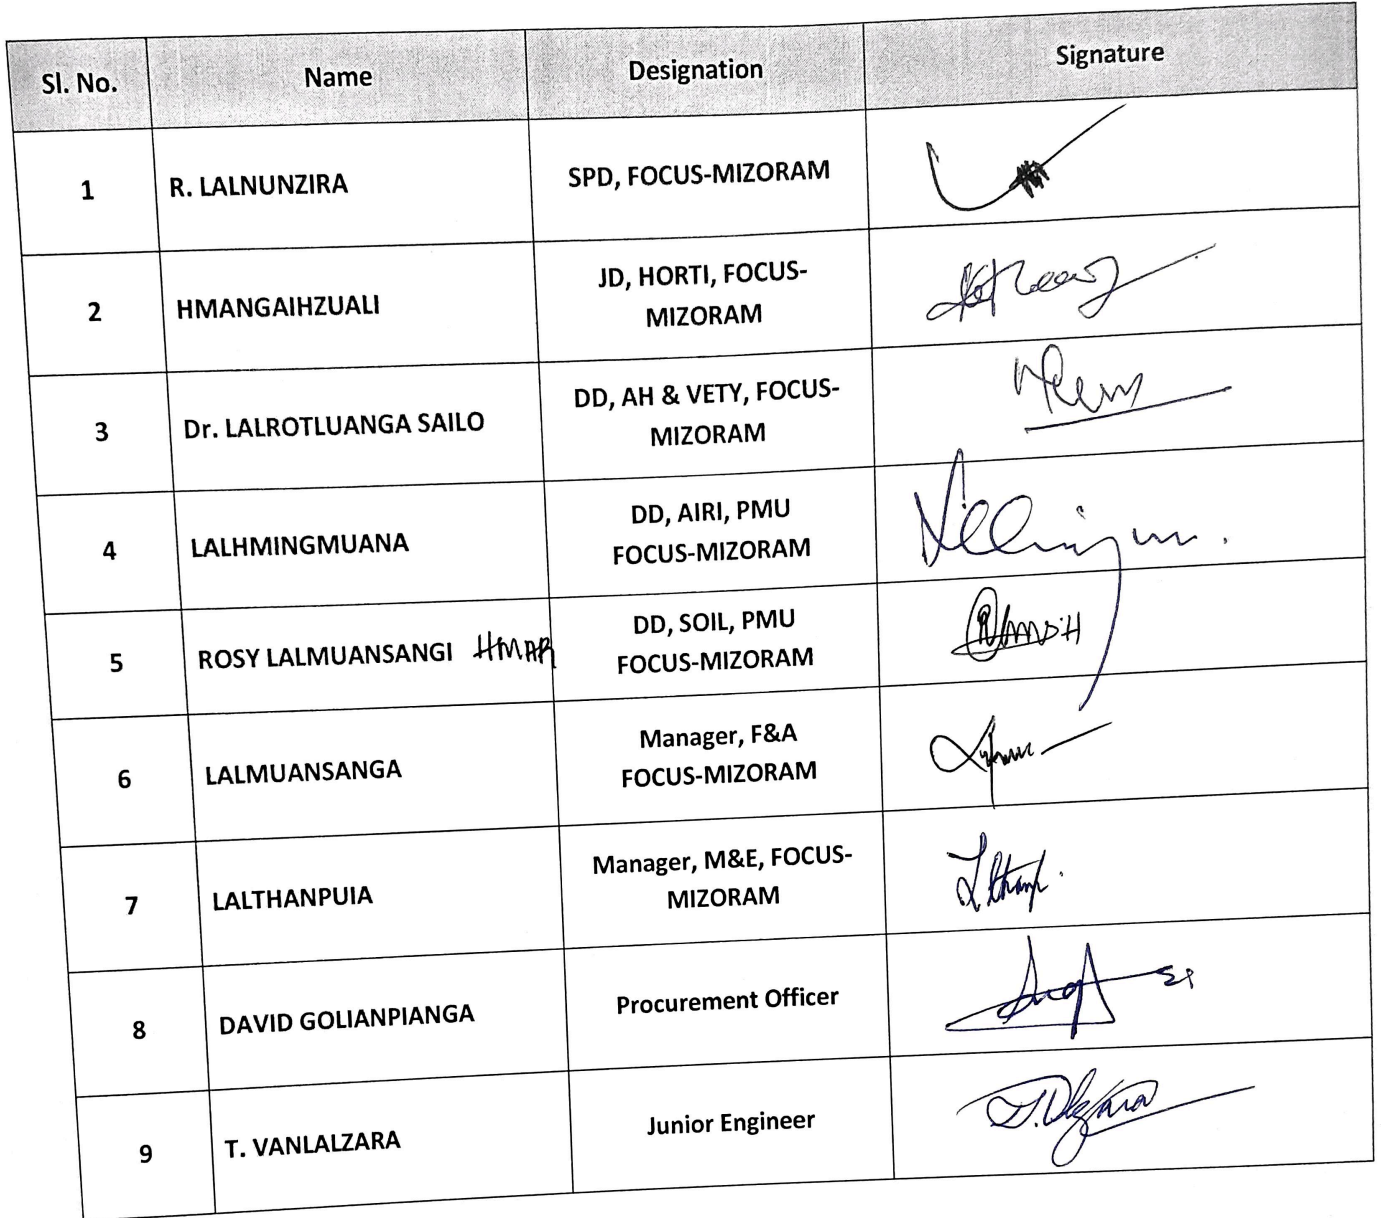 Sl. No. Name Designation Signature
1 R. LALNUNZIRA SPD, FOCUS-MIZORAM
2 HMANGAIHZUALI JD, HORTI, FOCUS-
MIZORAM
3 Dr. LALROTLUANGA SAILO DD, AH & VETY, FOCUS-
MIZORAM
4 LALHMINGMUANA DD, AIRI, PMU
FOCUS-MIZORAM
5 ROSY LALMUANSANGI HMAR DD, SOIL, PMU
FOCUS-MIZORAM
6 LALMUANSANGA Manager, F&A
FOCUS-MIZORAM
7 LALTHANPUIA Manager, M&E, FOCUS-
MIZORAM
8 DAVID GOLIANPIANGA Procurement Officer
9 T. VANLALZARA Junior Engineer